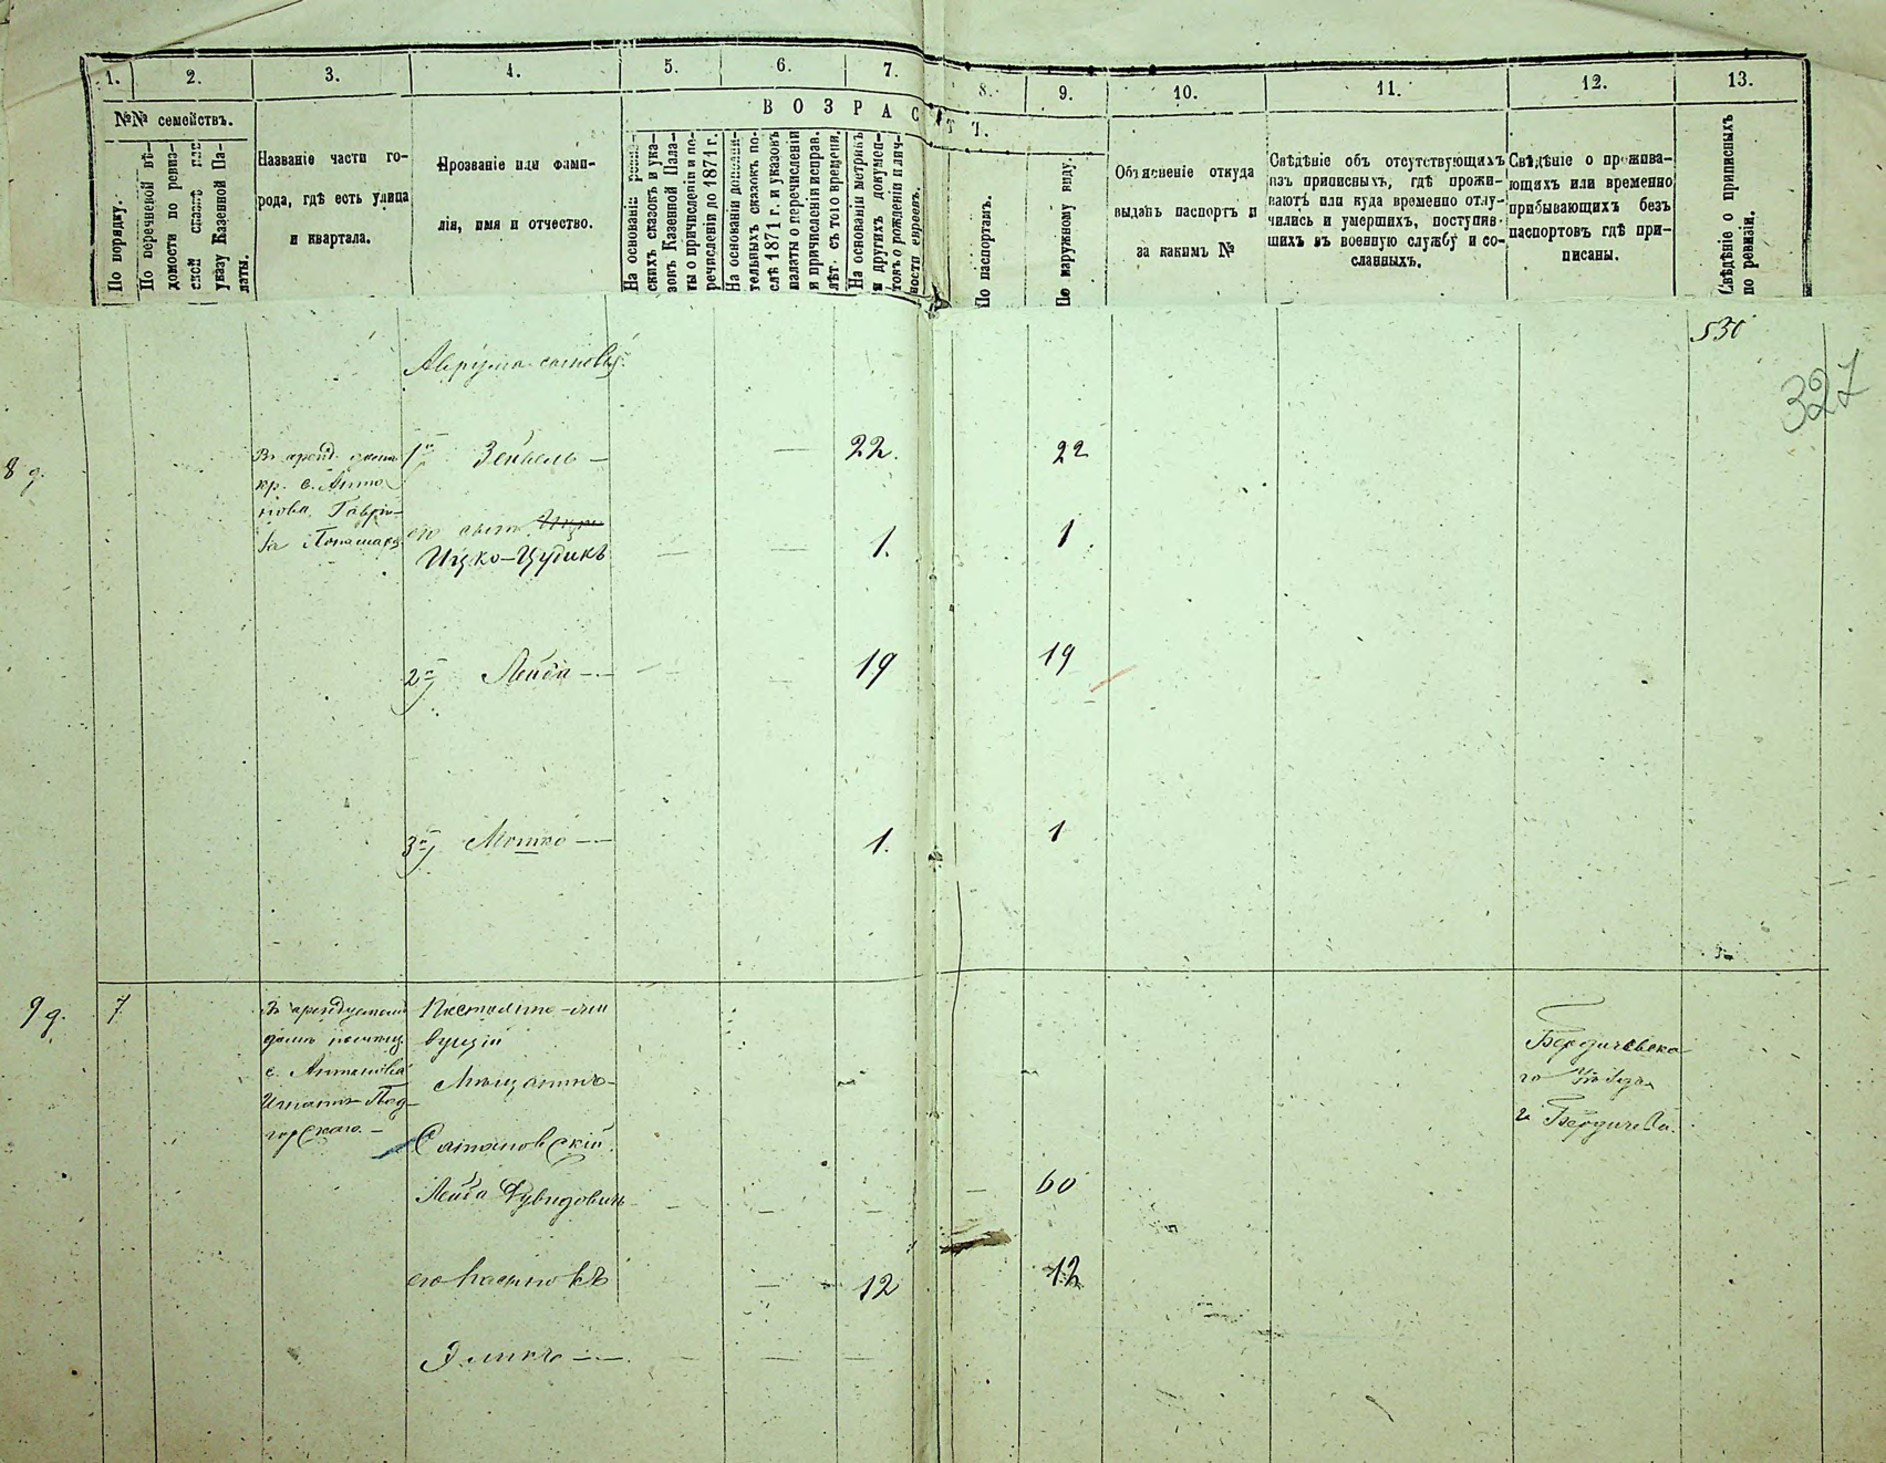 1. 2. 3. 4. 5. 6. 7. 8. 9. 10. 11. 12. 13.
№№ семействъ.
По порядку.
По перечневой вѣ-
домости по ревиз-
ской сказкѣ или
указу Казенной Па-
латы.
Названіе части го-
рода, гдѣ есть улица
и квартала.
Прозваніе или фами-
лія, имя и отчество.
ВОЗРАСТЪ.
На основаніи ревиз-
скихъ сказокъ и ука-
зовъ Казенной Пала-
ты о причисленіи и пе-
речисленіи до 1871 г.
На основаніи дополни-
тельныхъ сказокъ по-
слѣ 1871 г. и указовъ
палаты о перечисленіи
и причисленіи исправ.
лѣт. съ того времени.
На основаніи метрикъ
и другихъ докумен-
товъ о рожденіи и лич-
ности евреевъ.
По паспортамъ.
По наружному виду.
Объясненіе откуда
выданъ паспортъ и
за какимъ №
Свѣдѣніе объ отсутствующихъ
изъ приписныхъ, гдѣ прожи-
ваютъ или куда временно отлу-
чились и умершихъ, поступив-
шихъ въ военную службу и со-
сланныхъ.
Свѣдѣніе о прожива-
ющихъ или временно
прибывающихъ безъ
паспортовъ гдѣ при-
писаны.
Свѣдѣніе о приписныхъ
по ревизіи.
530
327
Аврума сыновья:
8 д.
кр. с. Анто
нова Гаври-
1й Зейвель — — 22. 22
его сынъ
Ицко-Цудикъ — — 1. 1.
2й Лейба — 19 19
3й Мошко — 1. 1
9 д. 7
Въ арендуемомъ
домѣ
с. Антонова
Игната Под-
горскаго. —
Постоянно-жи
вущій
Мѣщанинъ
Сатановскій
Лейба Дувидовичъ — — — — 60
его пасынокъ — 12 12
Эликъ — — — —
Бердичевска
го уѣзда
г. Бердичева.